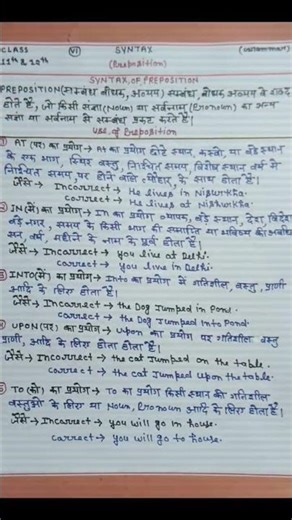 CLASS (VI) SYNTAX (Grammar)
11th & 12th (Preposition)
SYNTAX OF PREPOSITION
PREPOSITION (सम्बंध बोधक, अव्यय) सम्बंध बोधक अव्यय वे शब्द
होते हैं, जो किसी संज्ञा (Noun) या सर्वनाम (Pronoun) का अन्य
संज्ञा या सर्वनाम से सम्बंध प्रकट करते हैं।
Use of Preposition
① AT (पर) का प्रयोग → At का प्रयोग छोटे स्थान, कस्बो, या बड़े स्थान
के एक भाग, स्थिर वस्तु, निश्चित समय, विशेष स्थान वर्ष में
निश्चित समय पर होने वाले त्यौहार, के साथ होता है।
जैसे → Incorrect → He lives in
Correct → He lives at
② IN (में) का प्रयोग → In का प्रयोग व्यापक, बड़े स्थान, देश, विदेश
बड़े नगर, समय के किसी भाग की समाप्ति या भविष्य की अवधि
सन्, वर्ष, महीने के नाम के पूर्व होता है।
जैसे → Incorrect → You live at Delhi.
correct → You live in Delhi.
③ INTO (में) का प्रयोग → Into का प्रयोग में गतिशील, वस्तु, प्राणी
आदि के लिए होता है।
जैसे → Incorrect → the Dog Jumped in Pond.
correct → the Dog Jumped into Pond.
④ UPON (पर) का प्रयोग → Upon का प्रयोग पर गतिशील वस्तु
प्राणी, आदि के लिए होता होता है।
जैसे → Incorrect → the cat Jumped on the table.
correct → the cat Jumped upon the table.
⑤ TO (को) का प्रयोग → To का प्रयोग किसी स्थान की गतिशील
वस्तुओं के लिए या Noun, Pronoun आदि के लिए होता है।
जैसे → Incorrect → you will go in house.
correct → you will go to house.